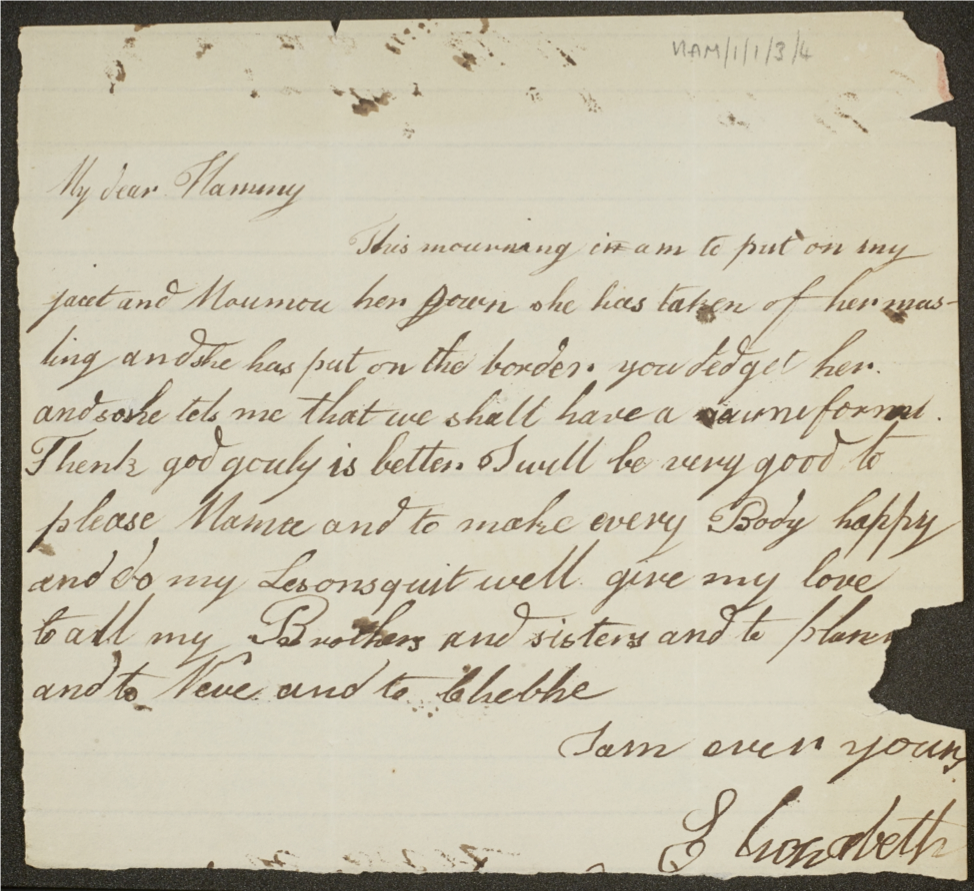 NAM/1/1/3/4
My dear Flammy
This mourning im am to put on my
jacet and Moumou her gown she has taken of her mus-
ling and she has put on the border you ded get her.
and so she tels me that we shall have a
Thenk god gouly is better. I will be very good to
please Mama and to make every Body happy
and do my Lesons quit well give my love
to all my Brothers and sisters and to
and to Neve and to Chebhe
I am ever yours
Elizabeth